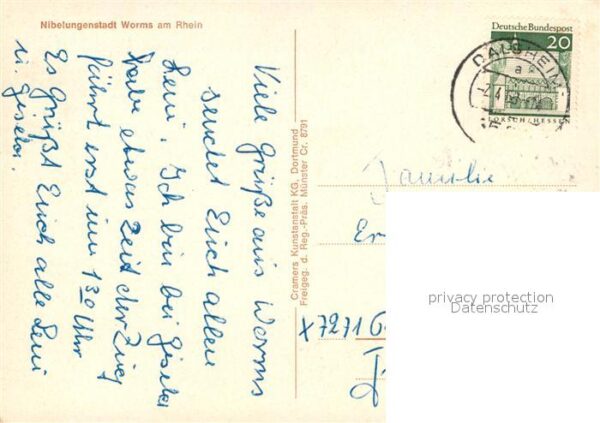 Nibelungenstadt Worms am Rhein
Viele Grüße aus Worms
sendet Euch allen
Leni. Ich bin bei Gisela
habe etwas Zeit der Zug
fährt erst um 130 Uhr
Es Grüßt Euch alle Leni
u. Gisela.
Cramers Kunstanstalt KG, Dortmund
Freigeg. d. Reg.-Präs. Münster Cr. 8791
Deutsche Bundespost
20
LORSCH/HESSEN
DALSHEIM
a
Familie
Er
x 7271 G
privacy protection
Datenschutz